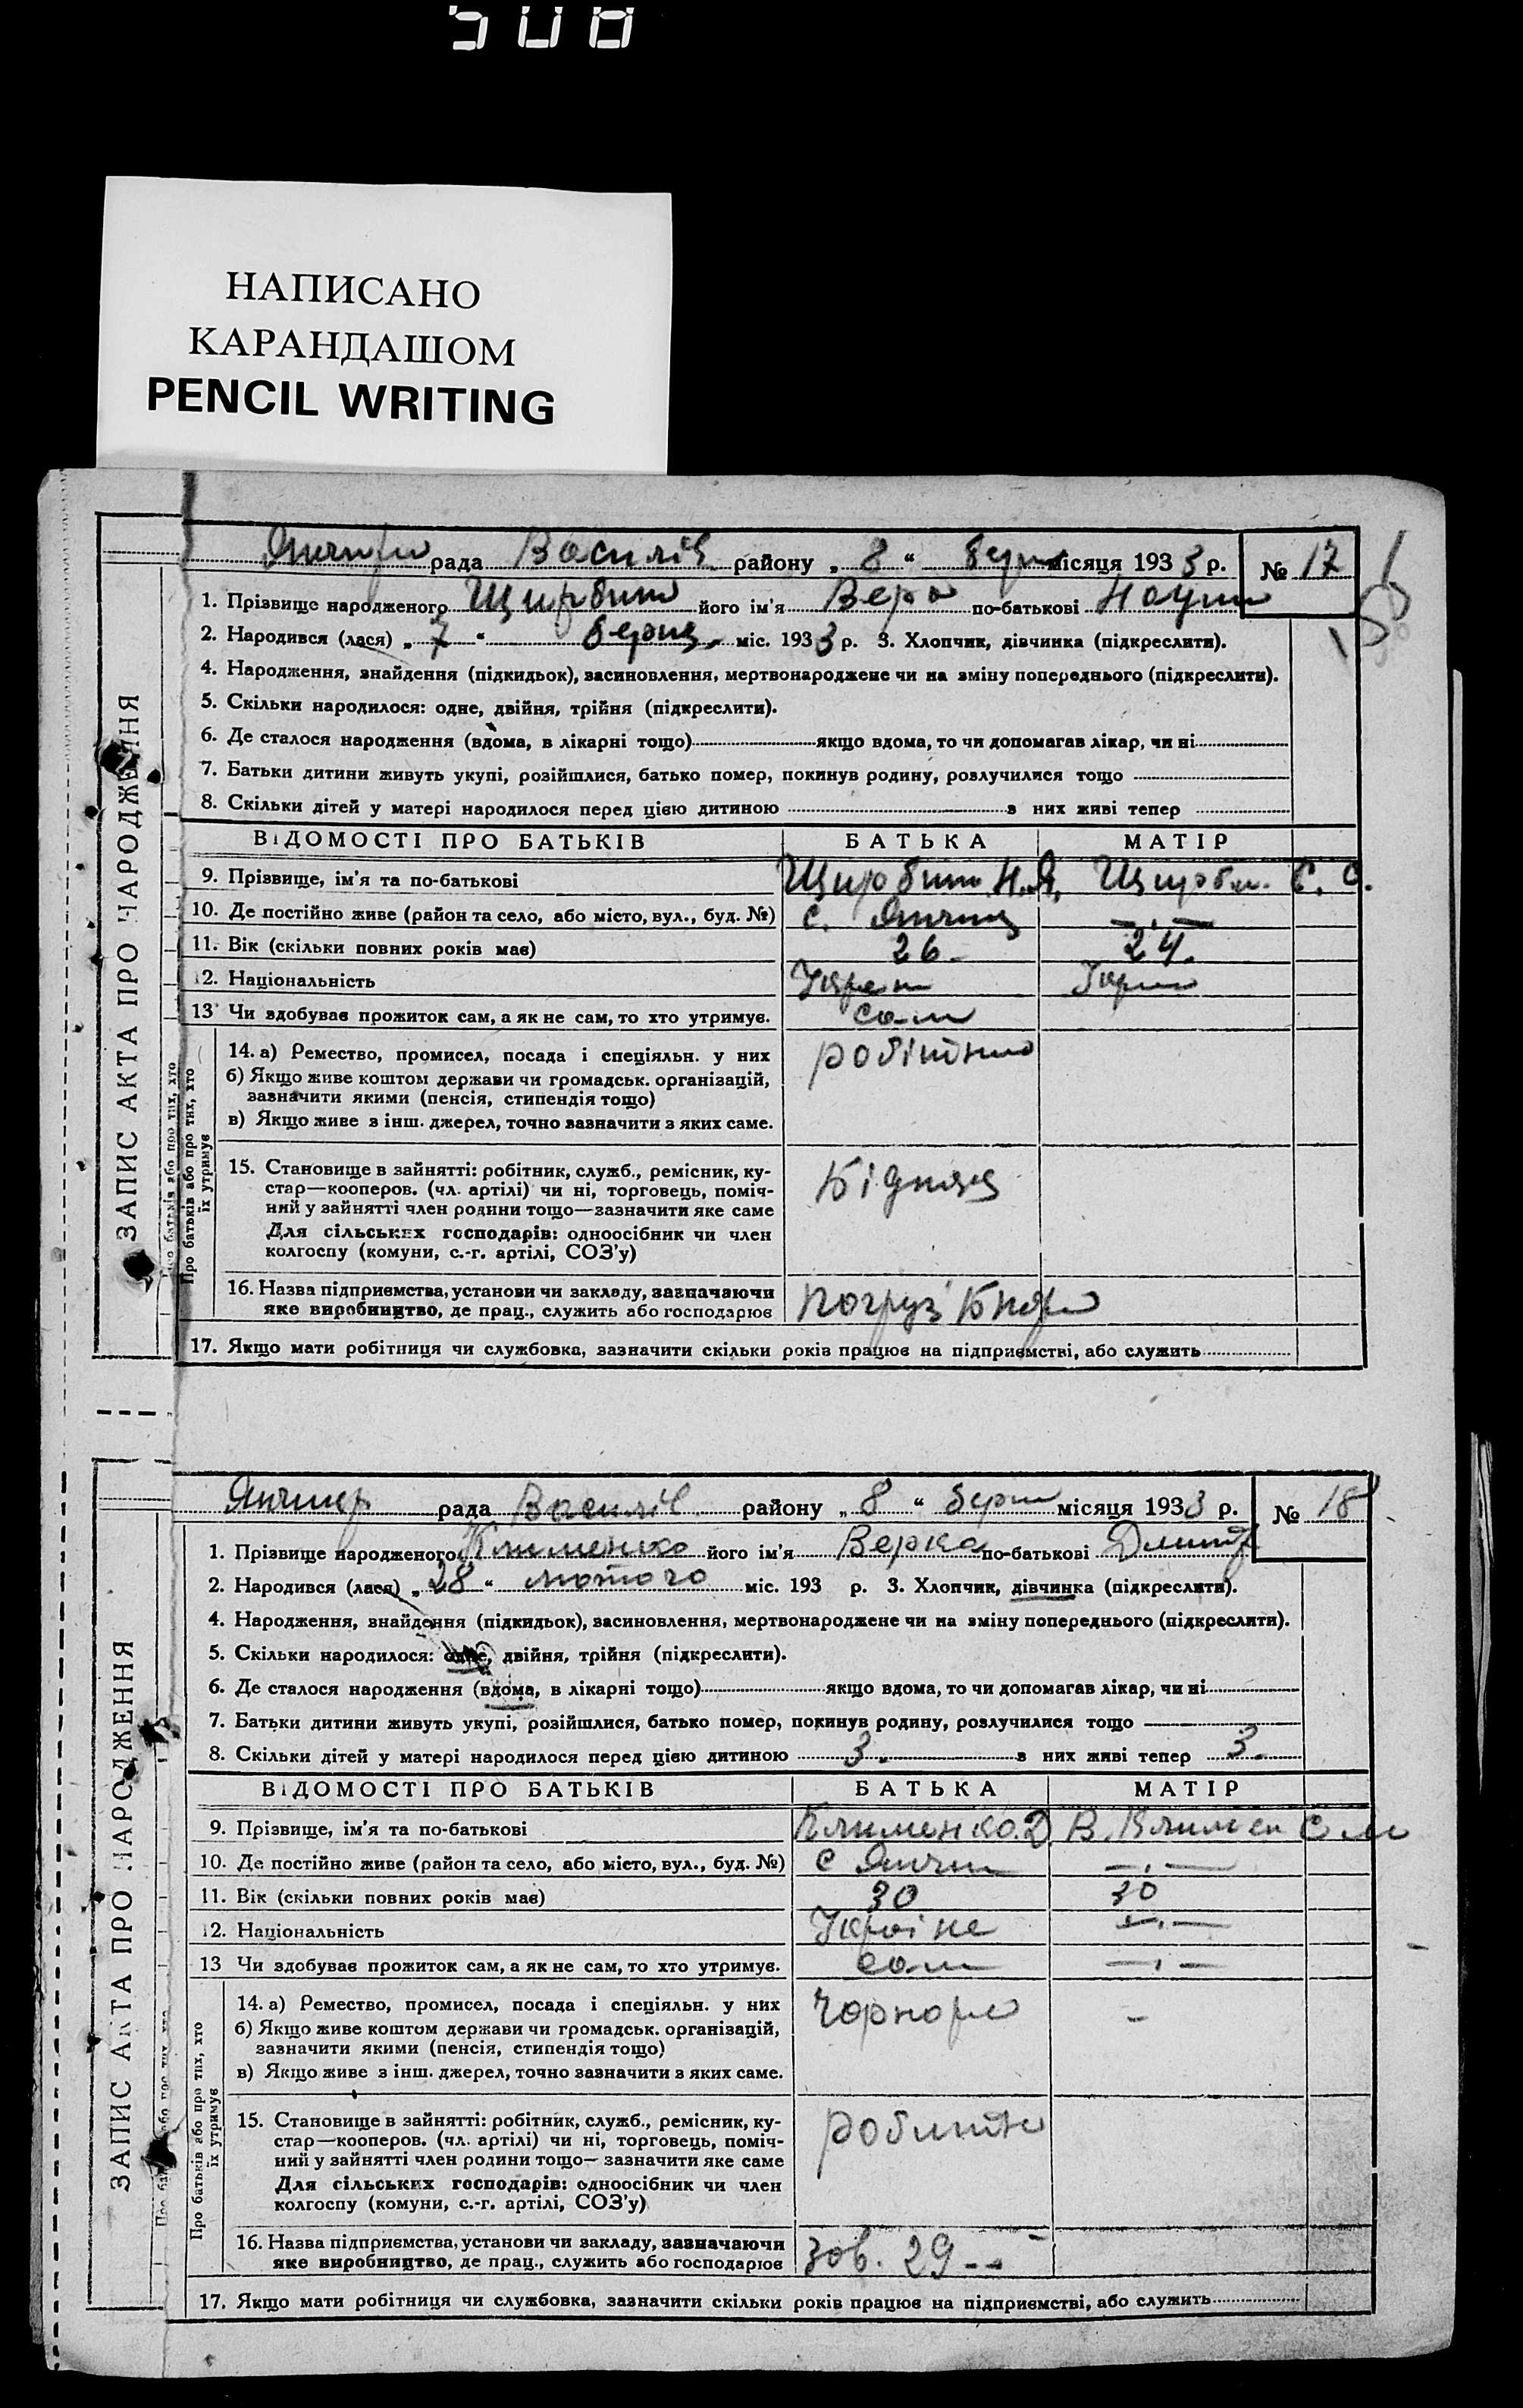 508
НАПИСАНО
КАРАНДАШОМ
PENCIL WRITING
ЗАПИС АКТА ПРО НАРОДЖЕННЯ
рада Василів. району „ 8 “ місяця 1933 р. № 17
1. Прізвище народженого його ім'я Вера по-батькові
2. Народився (лася) „ 7 “ міс. 1933 р. 3. Хлопчик, дівчинка (підкреслити).
4. Народження, знайдення (підкидьок), засиновлення, мертвонароджене чи на зміну попереднього (підкреслити).
5. Скільки народилося: одне, двійня, трійня (підкреслити).
6. Де сталося народження (вдома, в лікарні тощо) якщо вдома, то чи допомагав лікар, чи ні
7. Батьки дитини живуть укупі, розійшлися, батько помер, покинув родину, розлучилися тощо
8. Скільки дітей у матері народилося перед цією дитиною з них живі тепер
ВІДОМОСТІ ПРО БАТЬКІВ БАТЬКА МАТІР
9. Прізвище, ім'я та по-батькові
10. Де постійно живе (район та село, або місто, вул., буд. №) с. —„—
11. Вік (скільки повних років має) 26 24.
12. Національність
13 Чи здобував прожиток сам, а як не сам, то хто утримує. сам
Про батьків або про тих, хто
їх утримує
14. а) Ремество, промисел, посада і спеціяльн. у них
б) Якщо живе коштом держави чи громадськ. організацій,
зазначити якими (пенсія, стипендія тощо)
в) Якщо живе з інш. джерел, точно зазначити з яких саме.
15. Становище в зайнятті: робітник, служб., ремісник, ку-
стар—кооперов. (чл. артілі) чи ні, торговець, поміч-
ний у зайнятті член родини тощо—зазначити яке саме
Для сільських господарів: одноосібник чи член
колгоспу (комуни, с.-г. артілі, СОЗ'у)
16. Назва підприємства, установи чи закладу, зазначаючи
яке виробництво, де прац., служить або господарює
17. Якщо мати робітниця чи службовка, зазначити скільки років працює на підприємстві, або служить
ЗАПИС АКТА ПРО НАРОДЖЕННЯ
рада Василів. району „ 8 “ місяця 1933 р. № 18
1. Прізвище народженого Клименко його ім'я Верка по-батькові
2. Народився (лася) „ 28 “ лютого міс. 193 р. 3. Хлопчик, дівчинка (підкреслити).
4. Народження, знайдення (підкидьок), засиновлення, мертвонароджене чи на зміну попереднього (підкреслити).
5. Скільки народилося: одне, двійня, трійня (підкреслити).
6. Де сталося народження (вдома, в лікарні тощо) якщо вдома, то чи допомагав лікар, чи ні
7. Батьки дитини живуть укупі, розійшлися, батько помер, покинув родину, розлучилися тощо
8. Скільки дітей у матері народилося перед цією дитиною 3. з них живі тепер 3.
ВІДОМОСТІ ПРО БАТЬКІВ БАТЬКА МАТІР
9. Прізвище, ім'я та по-батькові Клименко. Д. В. Климен
10. Де постійно живе (район та село, або місто, вул., буд. №) с —„—
11. Вік (скільки повних років має) 30 30
12. Національність Україне —„—
13 Чи здобував прожиток сам, а як не сам, то хто утримує. сам —„—
Про батьків або про тих, хто
їх утримує
14. а) Ремество, промисел, посада і спеціяльн. у них Чорнорм -
б) Якщо живе коштом держави чи громадськ. організацій,
зазначити якими (пенсія, стипендія тощо)
в) Якщо живе з інш. джерел, точно зазначити з яких саме.
15. Становище в зайнятті: робітник, служб., ремісник, ку-
стар—кооперов. (чл. артілі) чи ні, торговець, поміч-
ний у зайнятті член родини тощо—зазначити яке саме
Для сільських господарів: одноосібник чи член
колгоспу (комуни, с.-г. артілі, СОЗ'у)
16. Назва підприємства, установи чи закладу, зазначаючи
яке виробництво, де прац., служить або господарює зов. 29
17. Якщо мати робітниця чи службовка, зазначити скільки років працює на підприємстві, або служить